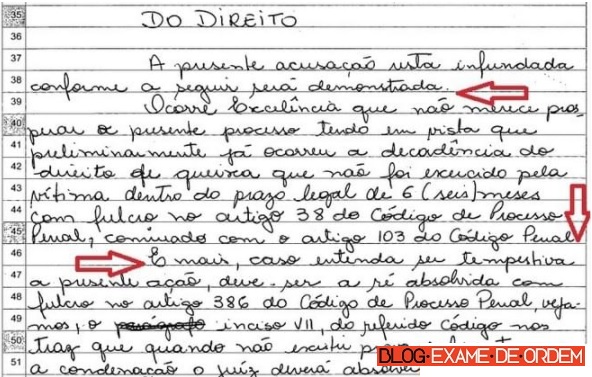 35 DO DIREITO
36
37 A presente acusação resta infundada
38 conforme a seguir será demonstrada.
39 Ocorre Excelência que não merece pros-
40 perar o presente processo tendo em vista que
41 preliminarmente já ocorreu a decadência do
42 direito de queixa que não foi exercido pela
43 vítima dentro do prazo legal de 6 (seis) meses
44 com fulcro no artigo 38 do Código de Processo
45 Penal, cominado com o artigo 103 do Código Penal
46 E mais, caso entenda ser tempestiva
47 a presente ação, deve ser a ré absolvida com
48 fulcro no artigo 386 do Código de Processo Penal, veja-
49 mos, o parágrafo inciso VII, do referido Código nos
50 traz que quando não existir
51 a condenação o juiz deverá absolver
BLOG EXAME DE ORDEM